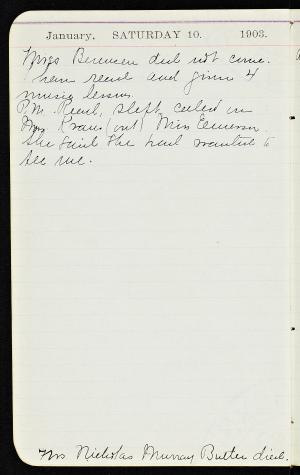 January, SATURDAY 10. 1903.
Miss Birmsen did not come.
have read and given 4
music lessons.
P.M. Read, slept, called on
Mrs Kraus (out) Miss Emerson.
She said she had wanted to
see me.
Mrs Nicholas Murray Butler died.